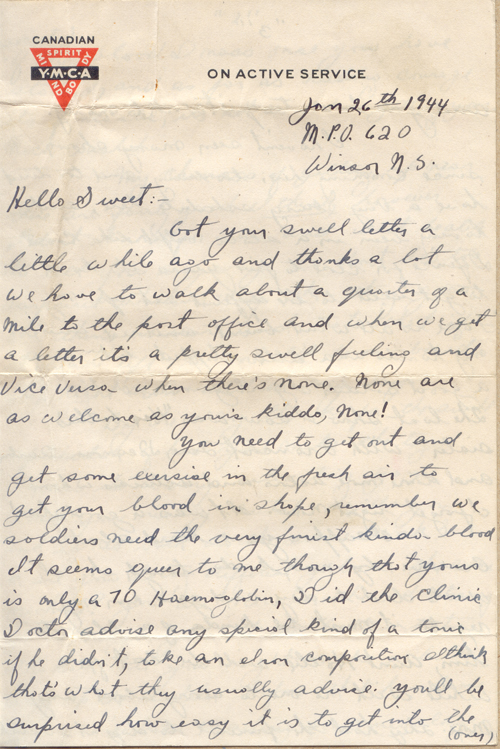 CANADIAN
SPIRIT
MIND
BODY
Y·M·C·A
ON ACTIVE SERVICE
Jan 26th 1944
M.P.O. 620
Winsor N.S.
Hello Sweet:-
Got your swell letter a
little while ago and thanks a lot
we have to walk about a quarter of a
mile to the post office and when we get
a letter it's a pretty swell feeling and
Vice Versa when there's none. None are
as welcome as your's kiddo, None!
You need to get out and
get some exersise in the fresh air to
get your blood in shape, remember we
soldiers need the very finist kinda blood
It seems queer to me though that yours
is only a 70 Haemoglobin, Did the Clinic
Doctor advise any special kind of a tonic
if he didn't, take an eiron composition I think
that's what they usually advise. you'll be
surprised how easy it is to get into the
(over)